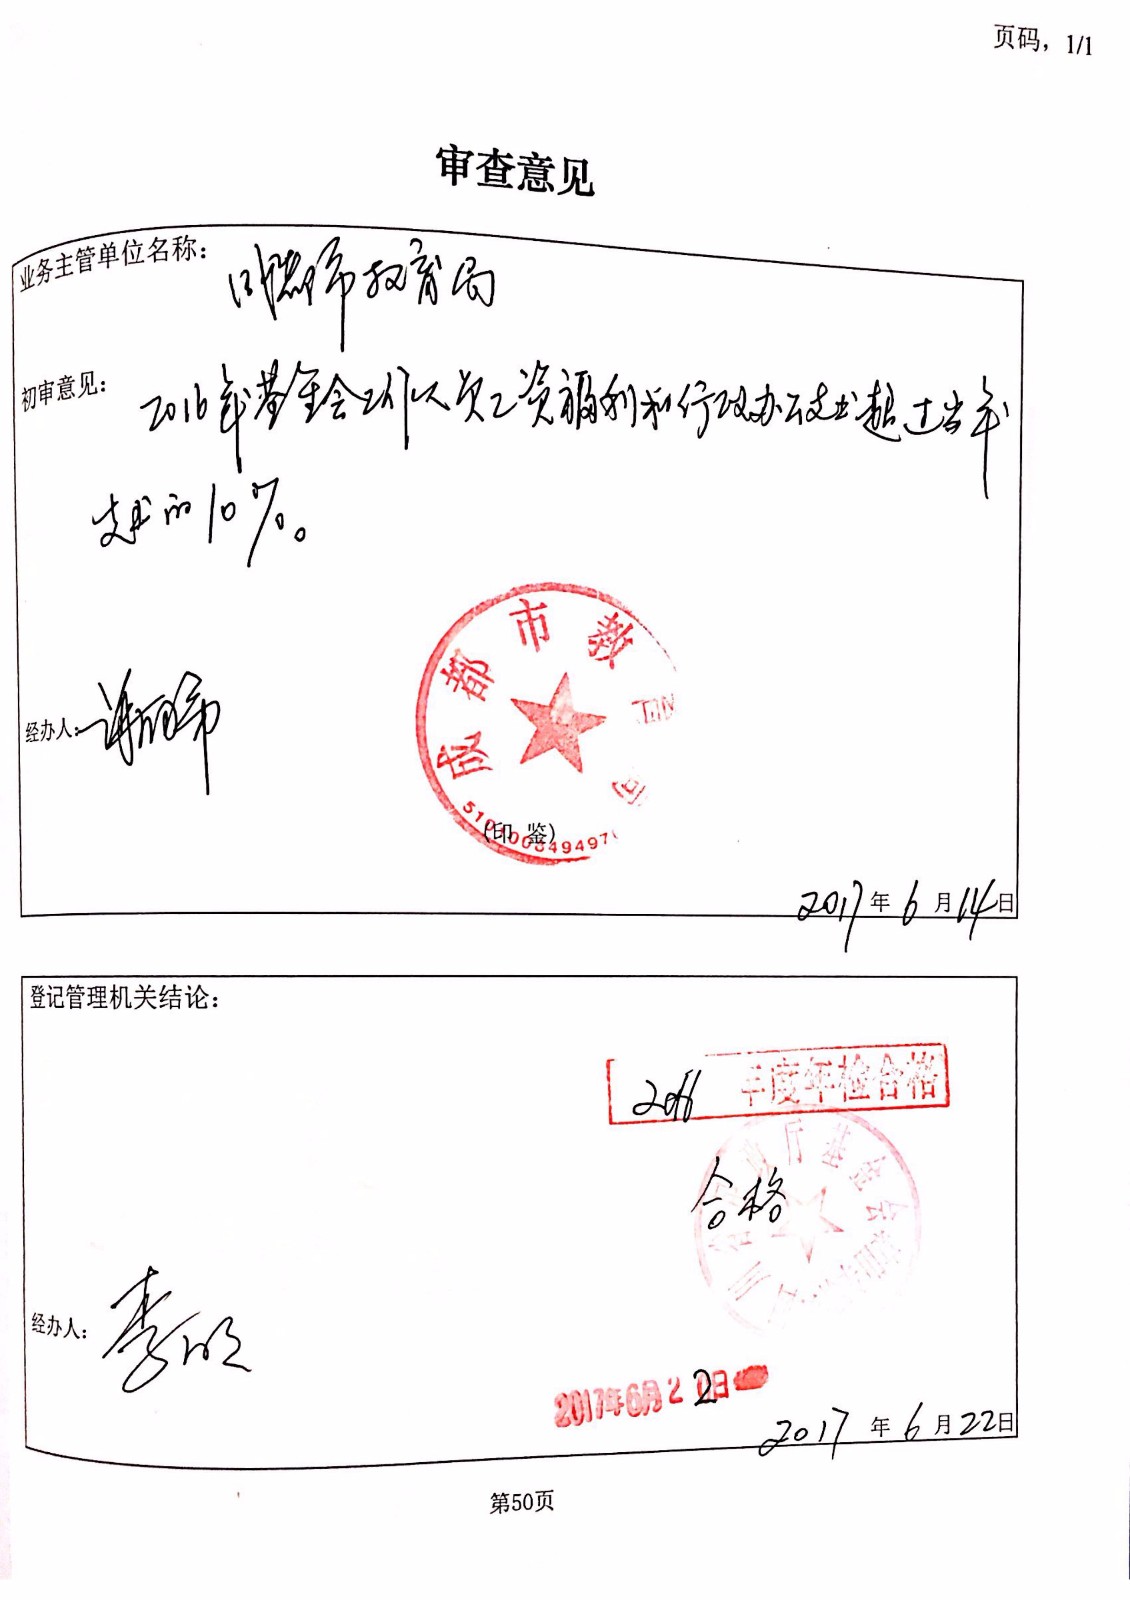 页码，1/1
审查意见
业务主管单位名称：
市教育局
初审意见：
2016年基金会工作人员工资福利和行政办公支出超过当年
支出的10%。
成都市教
经办人：
(印 鉴)
2017年6月14日
登记管理机关结论：
2016 年度年检合格
厅基金会
合格
经办人：
2017年6月22日
2017年6月22日
第50页